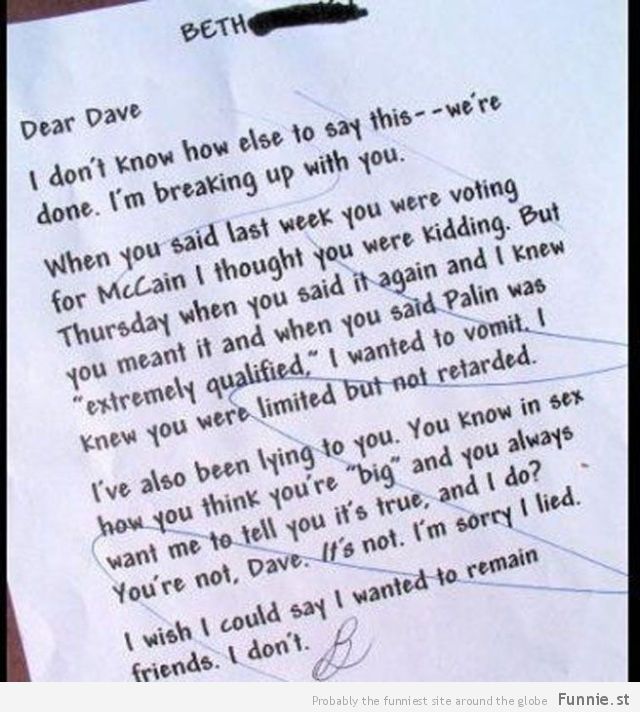 BETH
Dear Dave
I don't know how else to say this--we're
done. I'm breaking up with you.
When you said last week you were voting
for McCain I thought you were kidding. But
Thursday when you said it again and I knew
you meant it and when you said Palin was
"extremely qualified," I wanted to vomit. I
knew you were limited but not retarded.
I've also been lying to you. You know in sex
how you think you're "big" and you always
want me to tell you it's true, and I do?
You're not, Dave. It's not. I'm sorry I lied.
I wish I could say I wanted to remain
friends. I don't.
B
Probably the funniest site around the globe Funnie.st